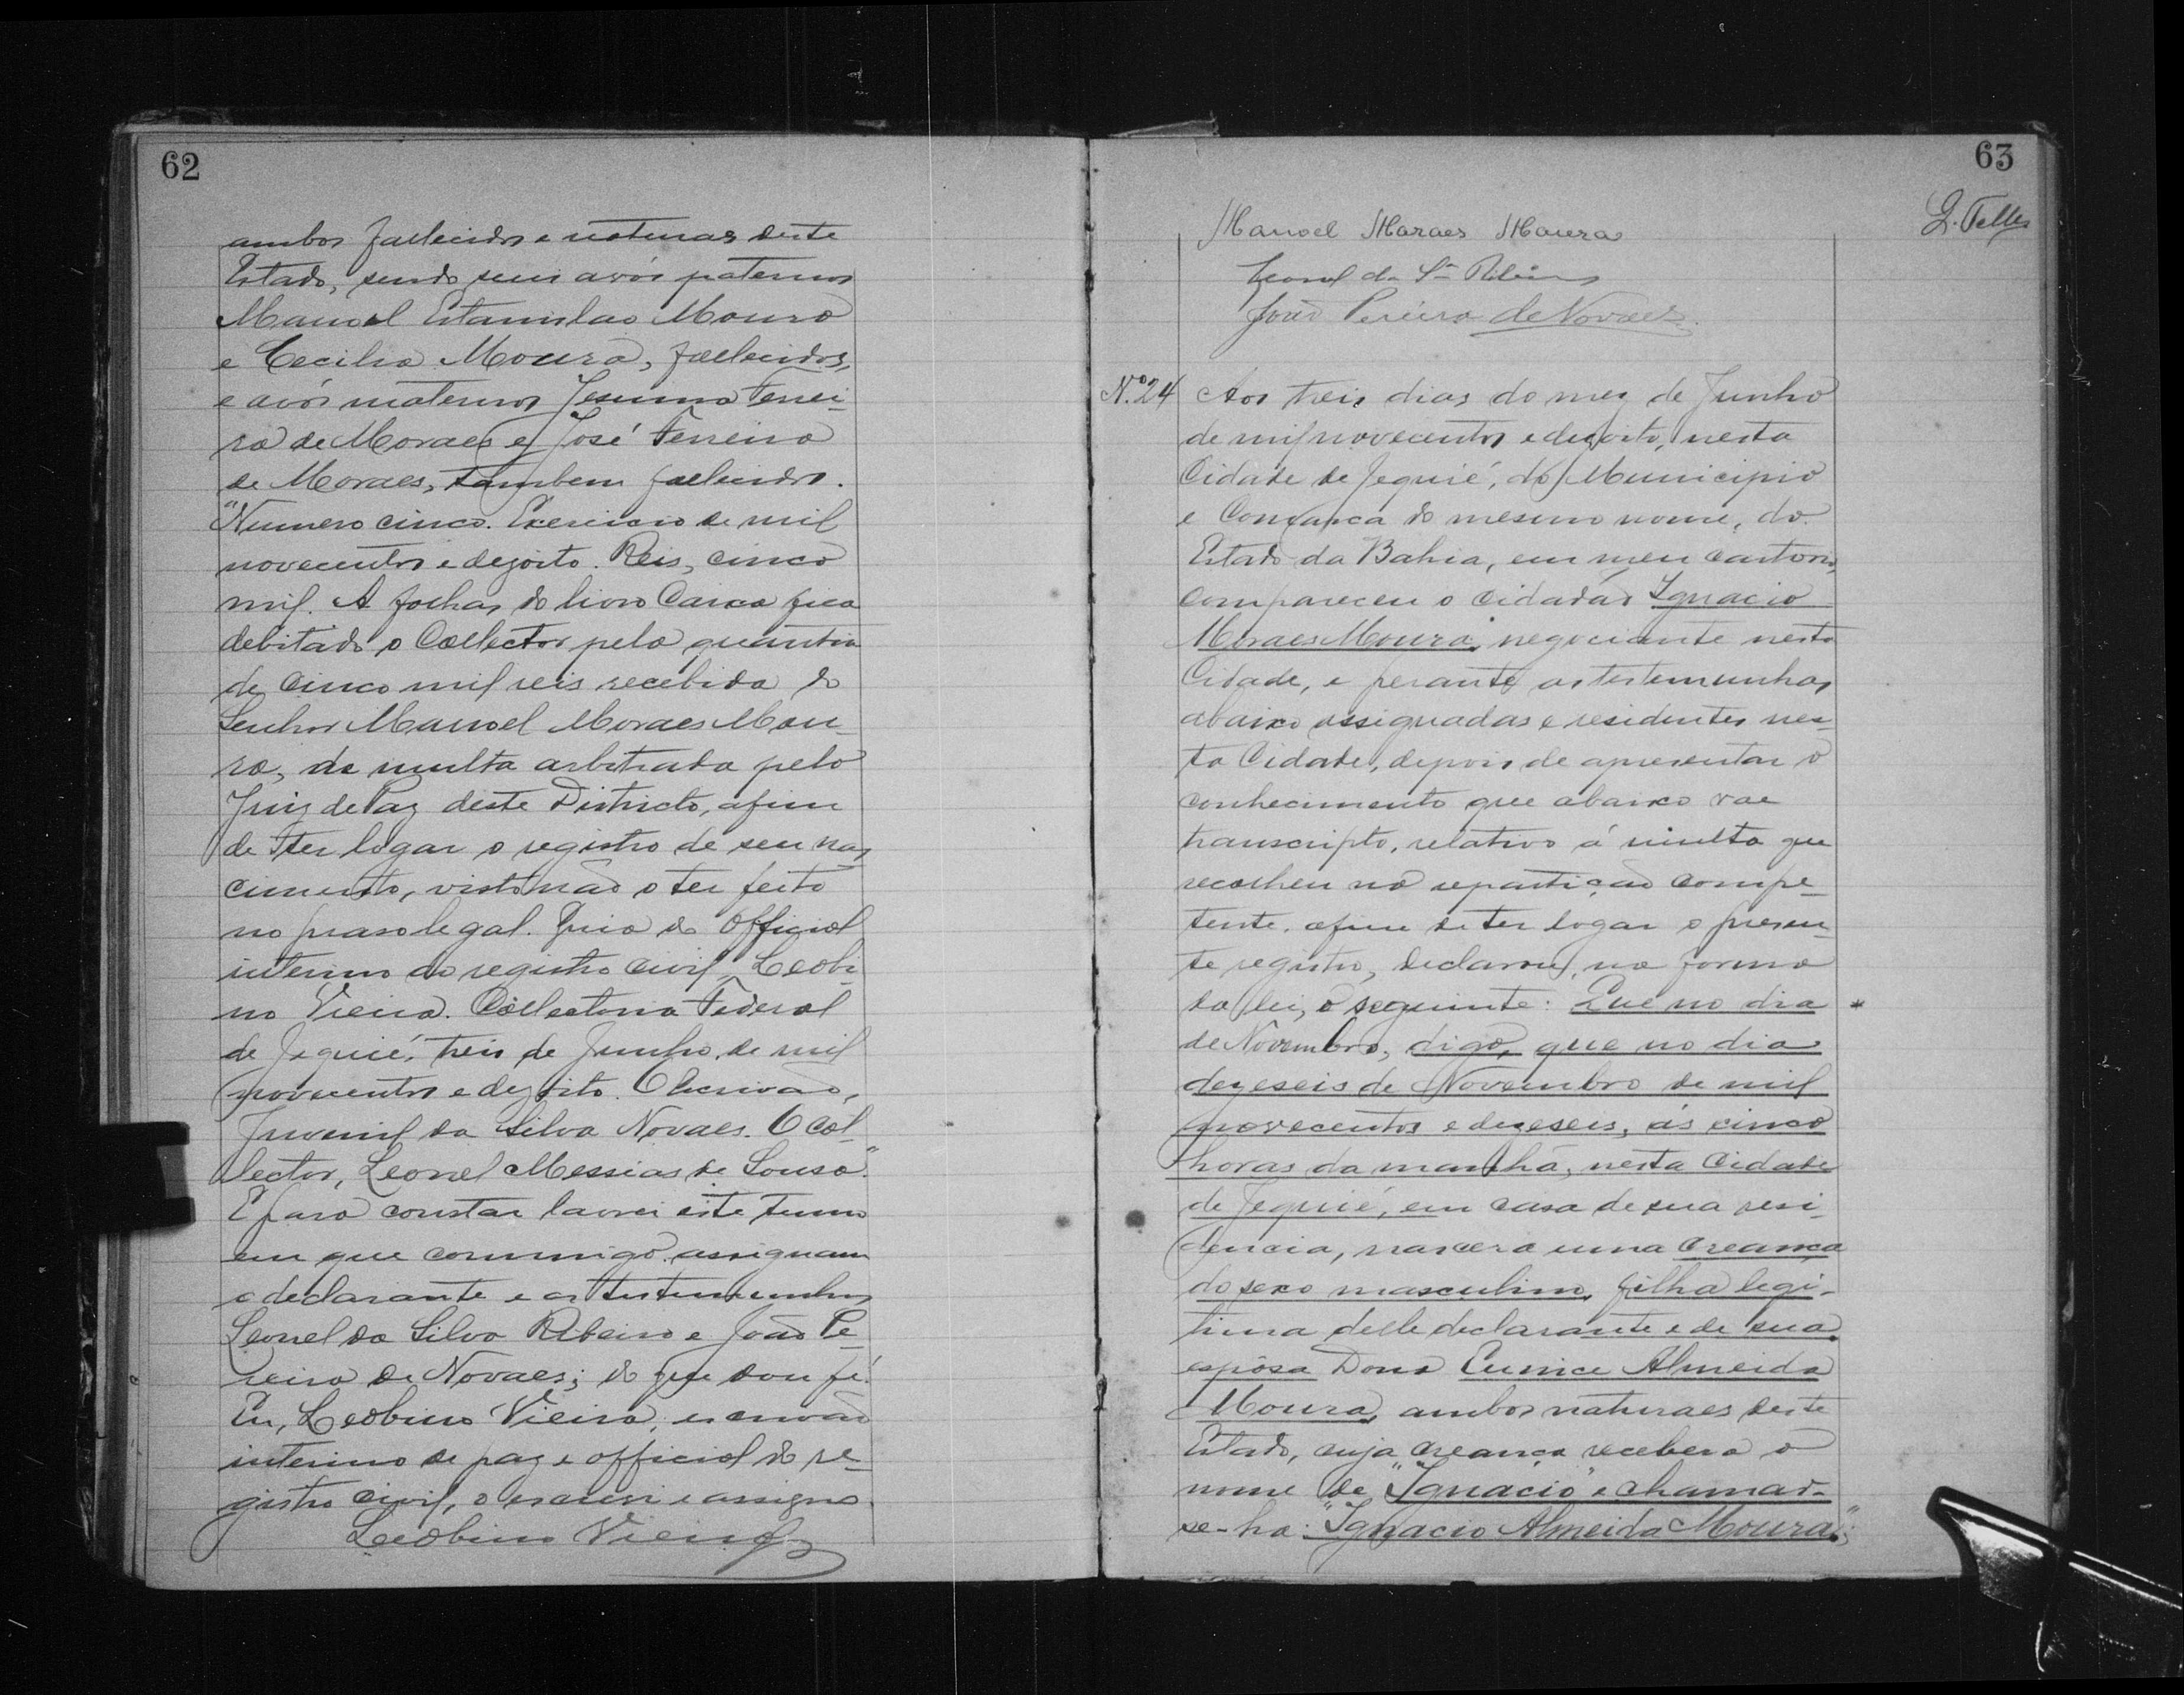 62
ambos fallecidos e naturaes deste
Estado, sendo seus avós paternos
Manoel Estanislao Moura
e Cecilia Moura, fallecidos,
e avós maternos Jesuina Ferrei-
ra de Moraes e José Ferreira
de Moraes, tambem fallecidos.
"Numero cinco. Exercicio de mil
novecentos e dezoito. Reis, cinco
mil. A folhas do livro Caixa fica
debitado o Collector pela quantia
de cinco mil reis recebida do
Senhor Manoel Moraes Mou-
ra, de multa arbitrada pelo
Juiz de Paz deste Districto, afim
de ter logar o registro de seu nas-
cimento, visto não o ter feito
no praso legal. Guia do Official
interino do registro civil, Leobi-
no Vieira. Collectoria Federal
de Jequié, treis de Junho de mil
novecentos e dezoito. O Escrivão,
Juvenil da Silva Novaes. O Col-
lector, Leonel Messias de Sousa."
E para constar lavrei este termo
em que commigo assignam
o declarante e as testemunhas
Leonel da Silva Ribeiro e João Pe-
reira de Novaes; do que dou fé.
Eu, Leobino Vieira, escrivão
interino de paz e official do re-
gistro civil, o escrevi e assigno.
Leobino Vieira
63
L. Telles
Manoel Moraes Moura
Leonel da Sª Ribeiro
João Pereira de Novaes.
N.º 24 Aos treis dias do mez de Junho
de mil novecentos e dezoito, nesta
Cidade de Jequié, do Municipio
e Comarca do mesmo nome, do
Estado da Bahia, em meu cartorio,
compareceu o cidadão Ignacio
Moraes Moura, negociante nesta
Cidade, e perante as testemunhas
abaixo assignadas e residentes nes-
ta Cidade, depois de apresentar o
conhecimento que abaixo vae
transcripto, relativo á multa que
recolheu na repartição compe-
tente, afim de ter logar o presen-
te registro, declarou, na forma
da lei, o seguinte: Que no dia *
de Novembro, digo, que no dia
dezeseis de Novembro de mil
novecentos e dezeseis, ás cinco
horas da manhã, nesta Cidade
de Jequié, em casa de sua resi-
dencia, nascera uma creança
do sexo masculino, filha legi-
tima delle declarante e de sua
esposa Dona Eunice Almeida
Moura, ambos naturaes deste
Estado, cuja creança recebera o
nome de "Ignacio" e chamar-
se-ha: "Ignacio Almeida Moura";